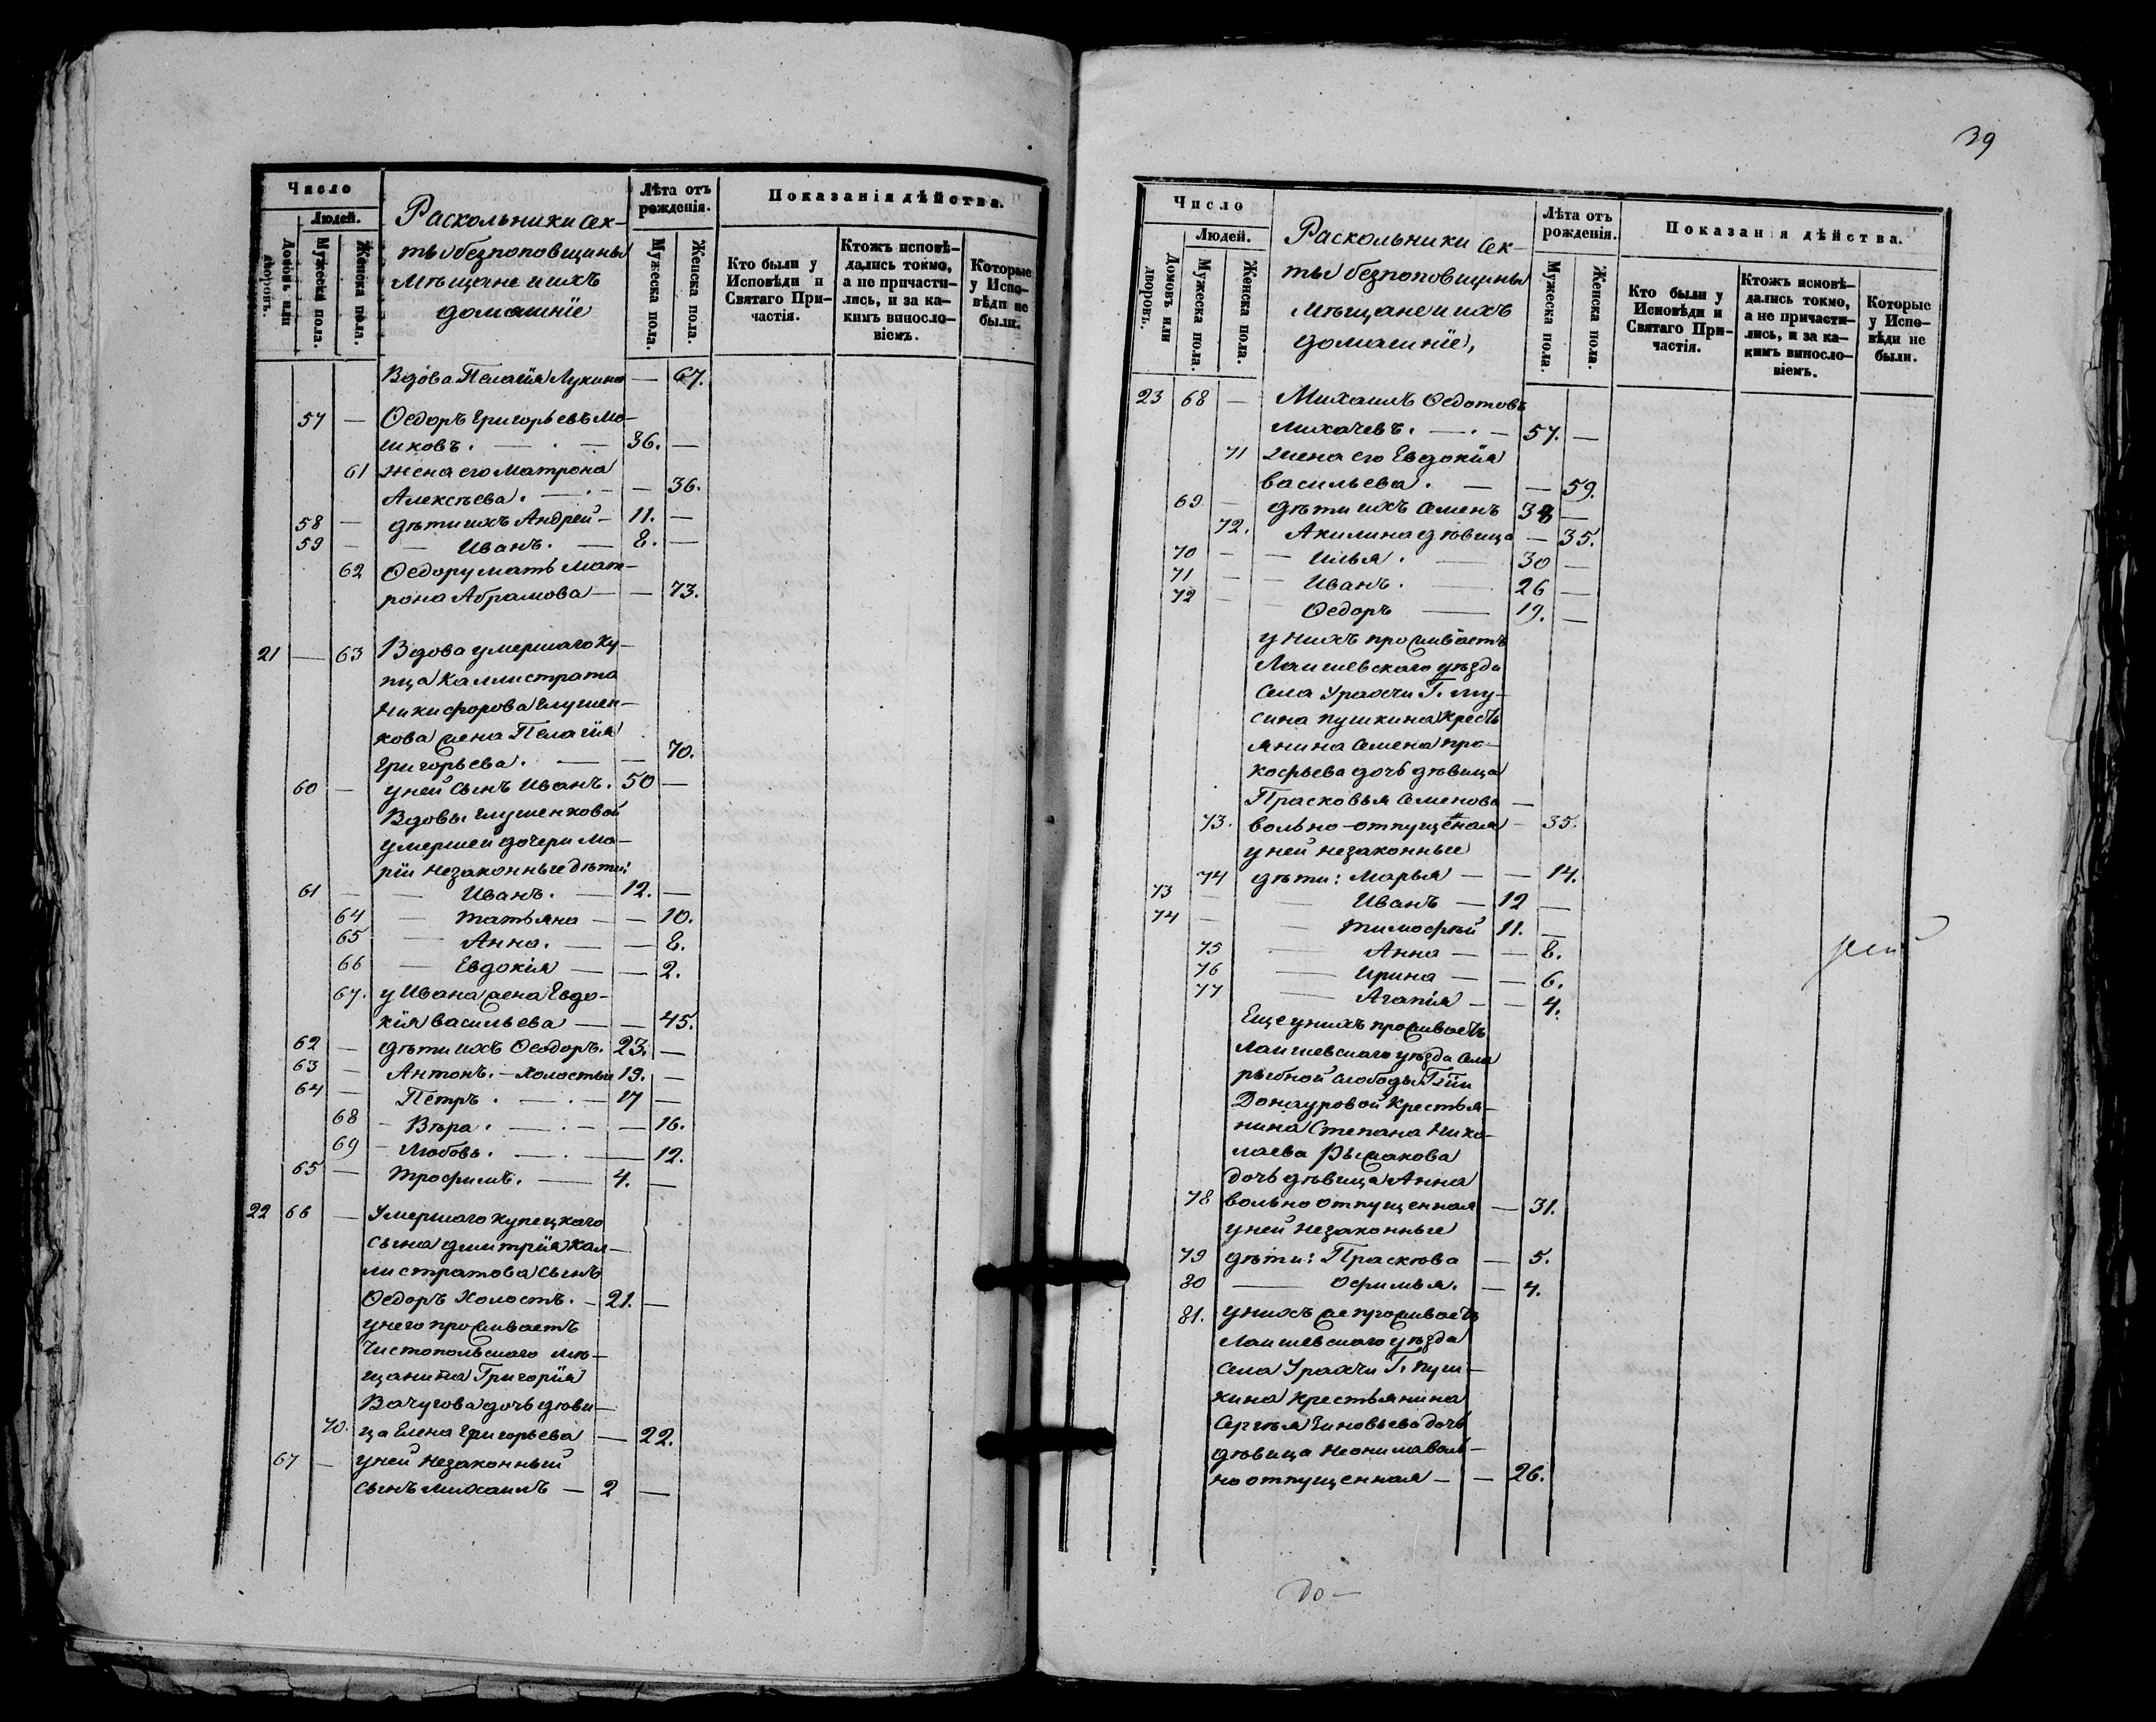 Число
Людей.
Домовъ или дворовъ.
Мужеска пола.
Женска пола.
Раскольники сек-
ты безпоповщины
Мѣщане и ихъ
домашніе
Лѣта отъ рожденія.
Мужеска пола.
Женска пола.
Показанія дѣйства.
Кто были у Исповѣди и Святаго При-частія.
Ктожъ исповѣ-дались токмо, а не причасти-лись, и за ка-кимъ винословіемъ.
Которые у Испо-вѣди не были.
Вдова Пелагія Лукина — 67.
57 — Ѳедоръ Григорьевъ Мо-
шковъ. — . — 36. —
61 жена его Матрона
Алексѣева. — . — — 36.
58 — дѣти ихъ Андрей — 11. —
59 — — Иванъ. — 8. —
62 Ѳедору мать Мат-
рона Абрамова — — 73.
21 — 63 Вдова умершаго ку-
пца Каллистрата
Никифорова Глушен-
кова жена Пелагія
Григорьева. — — 70.
60 — у ней сынъ Иванъ. 50 —
Вдовы Глушенковой
умершей дочери Ма-
ріи незаконные дѣти:
61 — — Иванъ. — 12. —
64 — Татьяна — — 10.
65 — Анна. — — 8.
66 — Евдокія — — 2.
67. у Ивана жена Евдо-
кія Васильева — — 45.
62 — дѣти ихъ Ѳеодоръ. 23. —
63 — Антонъ. — холостые 19. —
64 — Петръ. — . — 17 —
68 — Вѣра. — . — — 16.
69 — Любовь. — . — 12.
65 — Трофимъ. — 4. —
22 66 — Умершаго купецкаго
сына Дмитрія Кал-
листратова сынъ
Ѳедоръ холостъ. — 21. —
у него проживаетъ
Чистопольскаго мѣ-
щанина Григорія
Вачугова дочь дѣви-
70. ца Елена Григорьева — 22.
67 — у ней незаконный
сынъ Михаилъ — 2 —
39
Число
Людей.
Домовъ или дворовъ.
Мужеска пола.
Женска пола.
Раскольники сек-
ты безпоповщины
Мѣщане и ихъ
домашніе,
Лѣта отъ рожденія.
Мужеска пола.
Женска пола.
Показанія дѣйства.
Кто были у Исповѣди и Святаго При-частія.
Ктожъ исповѣ-дались токмо, а не причасти-лись, и за ка-кимъ винословіемъ.
Которые у Испо-вѣди не были.
23 68 — Михаилъ Ѳедотовъ
Лихачевъ. — . — 57. —
71 жена его Евдокія
Васильева. — — 59.
69 — дѣти ихъ Семенъ 38 —
72. Акилина дѣвица — 35.
70 — — Илья. — 30 —
71 — — Иванъ. — 26 —
72 — — Ѳедоръ — 19. —
у нихъ проживаетъ
Лаишевскаго уѣзда
села Урахчи Г. Му-
сина Пушкина кресть
янина Семена Про-
кофьева дочь дѣвица
Прасковья Семенова —
73. вольно-отпущеная — 35.
у ней незаконные
74 дѣти: Марья — — 14.
73 — — Иванъ — 12 —
74 — — Тимофѣй 11. —
75 — Анна — — 8.
76 — Ирина — — 6.
77 — Агапія — — 4.
Еще у нихъ проживаетъ
Лаишевскаго уѣзда села
рыбной слободы Г-жи
Донауровой крестья-
нина Степана Нико-
лаева Рыжакова
дочь дѣвица Анна
78 вольно отпущенная — 31.
у ней незаконные
79 дѣти: Прасковa — 5.
80 — Офимья. — 4.
81. у нихъ же проживаетъ
Лаишевскаго уѣзда
села Урахчи Г. Пуш-
кина крестьянина
Сергѣя Зиновьева дочь
дѣвица Неонила воль-
но отпущенная — — 26.